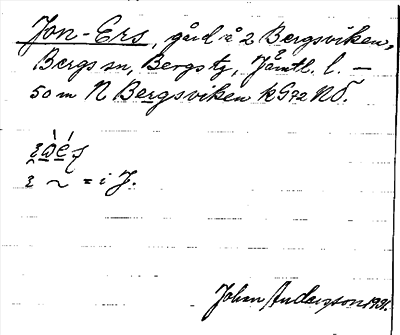 Jon-Ers, gård i å 2 Bergsviken,
Bergs sn, Bergs tg, Jämtl. l. —
50 m N Bergsviken kG72 NÖ.
~ = i J.
Johan Anderzson 1931.